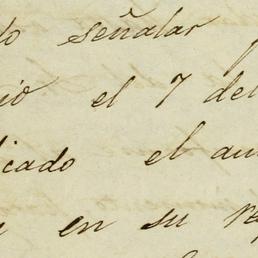 lo señalar
el 7 del
icado el au
en su